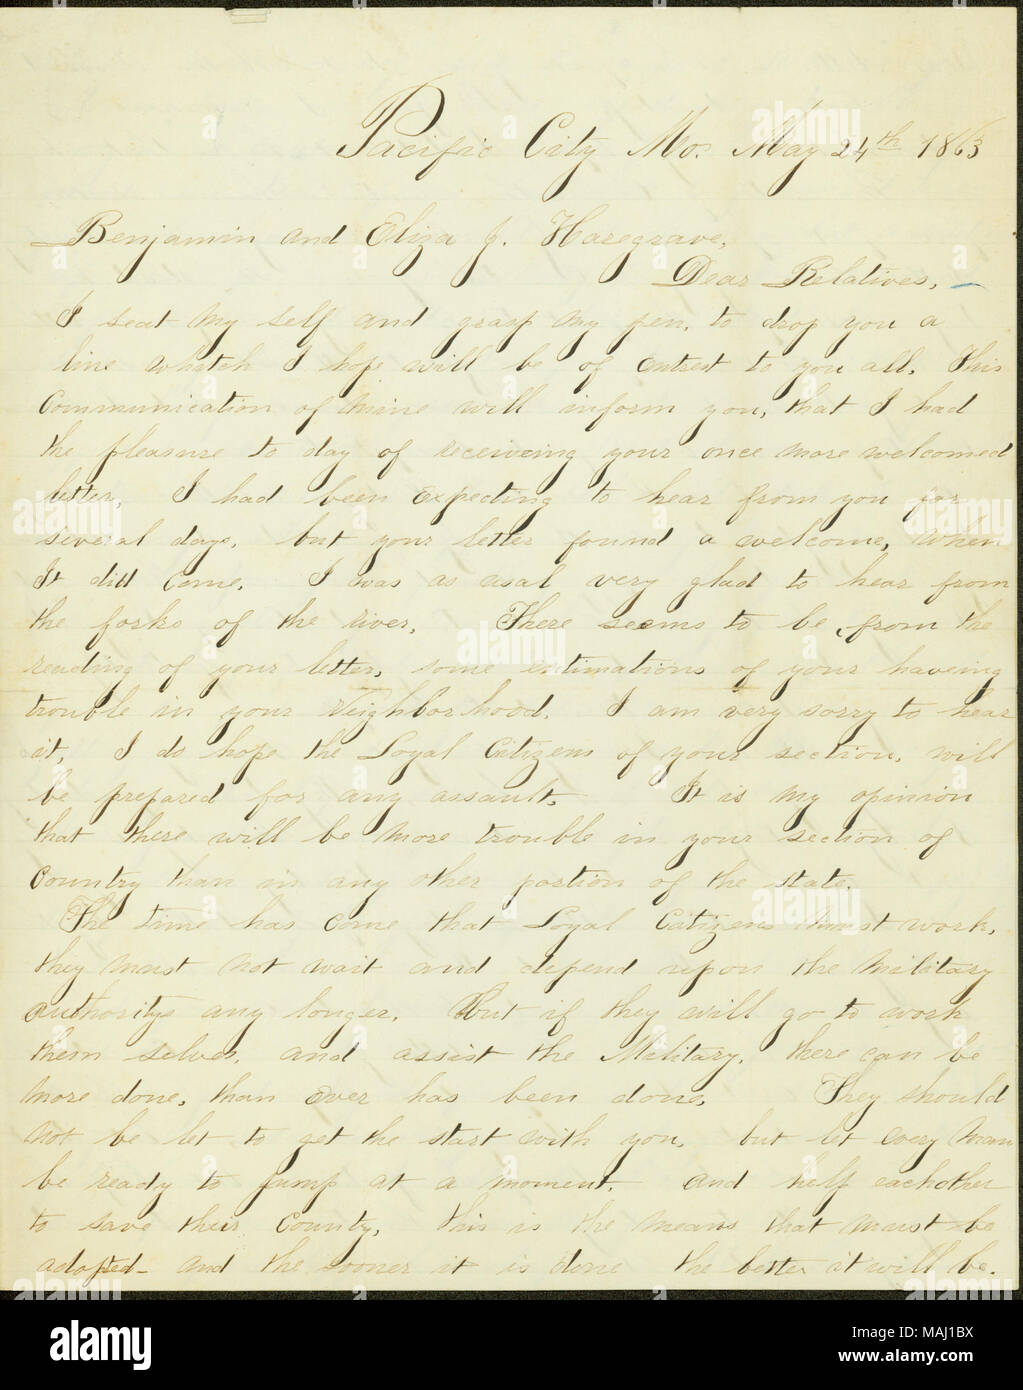 Pacific City Mo. May 24th 1863
Benjamin and Eliza J. Haregrave,
Dear Relatives,
I seat my self and grasp my pen, to drop you a
line whitch I hope will be of entrest to you all. This
Communication of mine will inform you, that I had
the pleasure to day of receiveing your once more welcomed
letter. I had been expecting to hear from you for
several days, but your letter found a welcome, when
It did come. I was as usal very glad to hear from
the forks of the river. There seems to be, from the
reading of your letter, some estimations of your haveing
trouble in your Neighborhood. I am very sorry to hear
it, I do hope the Loyal Citizens of your section, will
be prepared for any assault. It is my opinion
that there will be more trouble in your section of
Country than in any other portion of the state.
The time has come that Loyal Citizens must work,
they must not wait and depend upon the military
authoritys any longer. But if they will go to work
them selves, and assist the Military, there can be
more done, than ever has been done, They should
not be let to get the start with you, but let every man
be ready to jump at a moment, and help eachother
to save their County, this is the means that must be
adopted and the sooner it is done the better it will be.
alamy
alamy stock photo
MAJ1BX
www.alamy.com